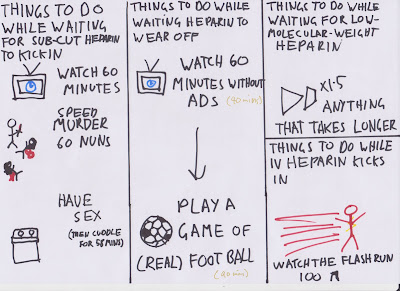 THINGS TO DO
WHILE WAITING
FOR SUB-CUT HEPARIN
TO KICKIN
WATCH 60
MINUTES
SPEED
MURDER
60 NUNS
HAVE
SEX
(THEN CUDDLE
FOR 58 MINS)
THINGS TO DO WHILE
WAITING HEPARIN TO
WEAR OFF
WATCH 60
MINUTES WITHOUT
ADS (90 mins)
PLAY A
GAME OF
(REAL) FOOTBALL
(90 mins)
THINGS TO DO WHILE
WAITING FOR LOW-
MOLECULAR-WEIGHT
HEPARIN
x1.5
ANYTHING
THAT TAKES LONGER
THINGS TO DO WHILE
IV HEPARIN KICKS
IN
WATCH THE FLASH RUN
100 M